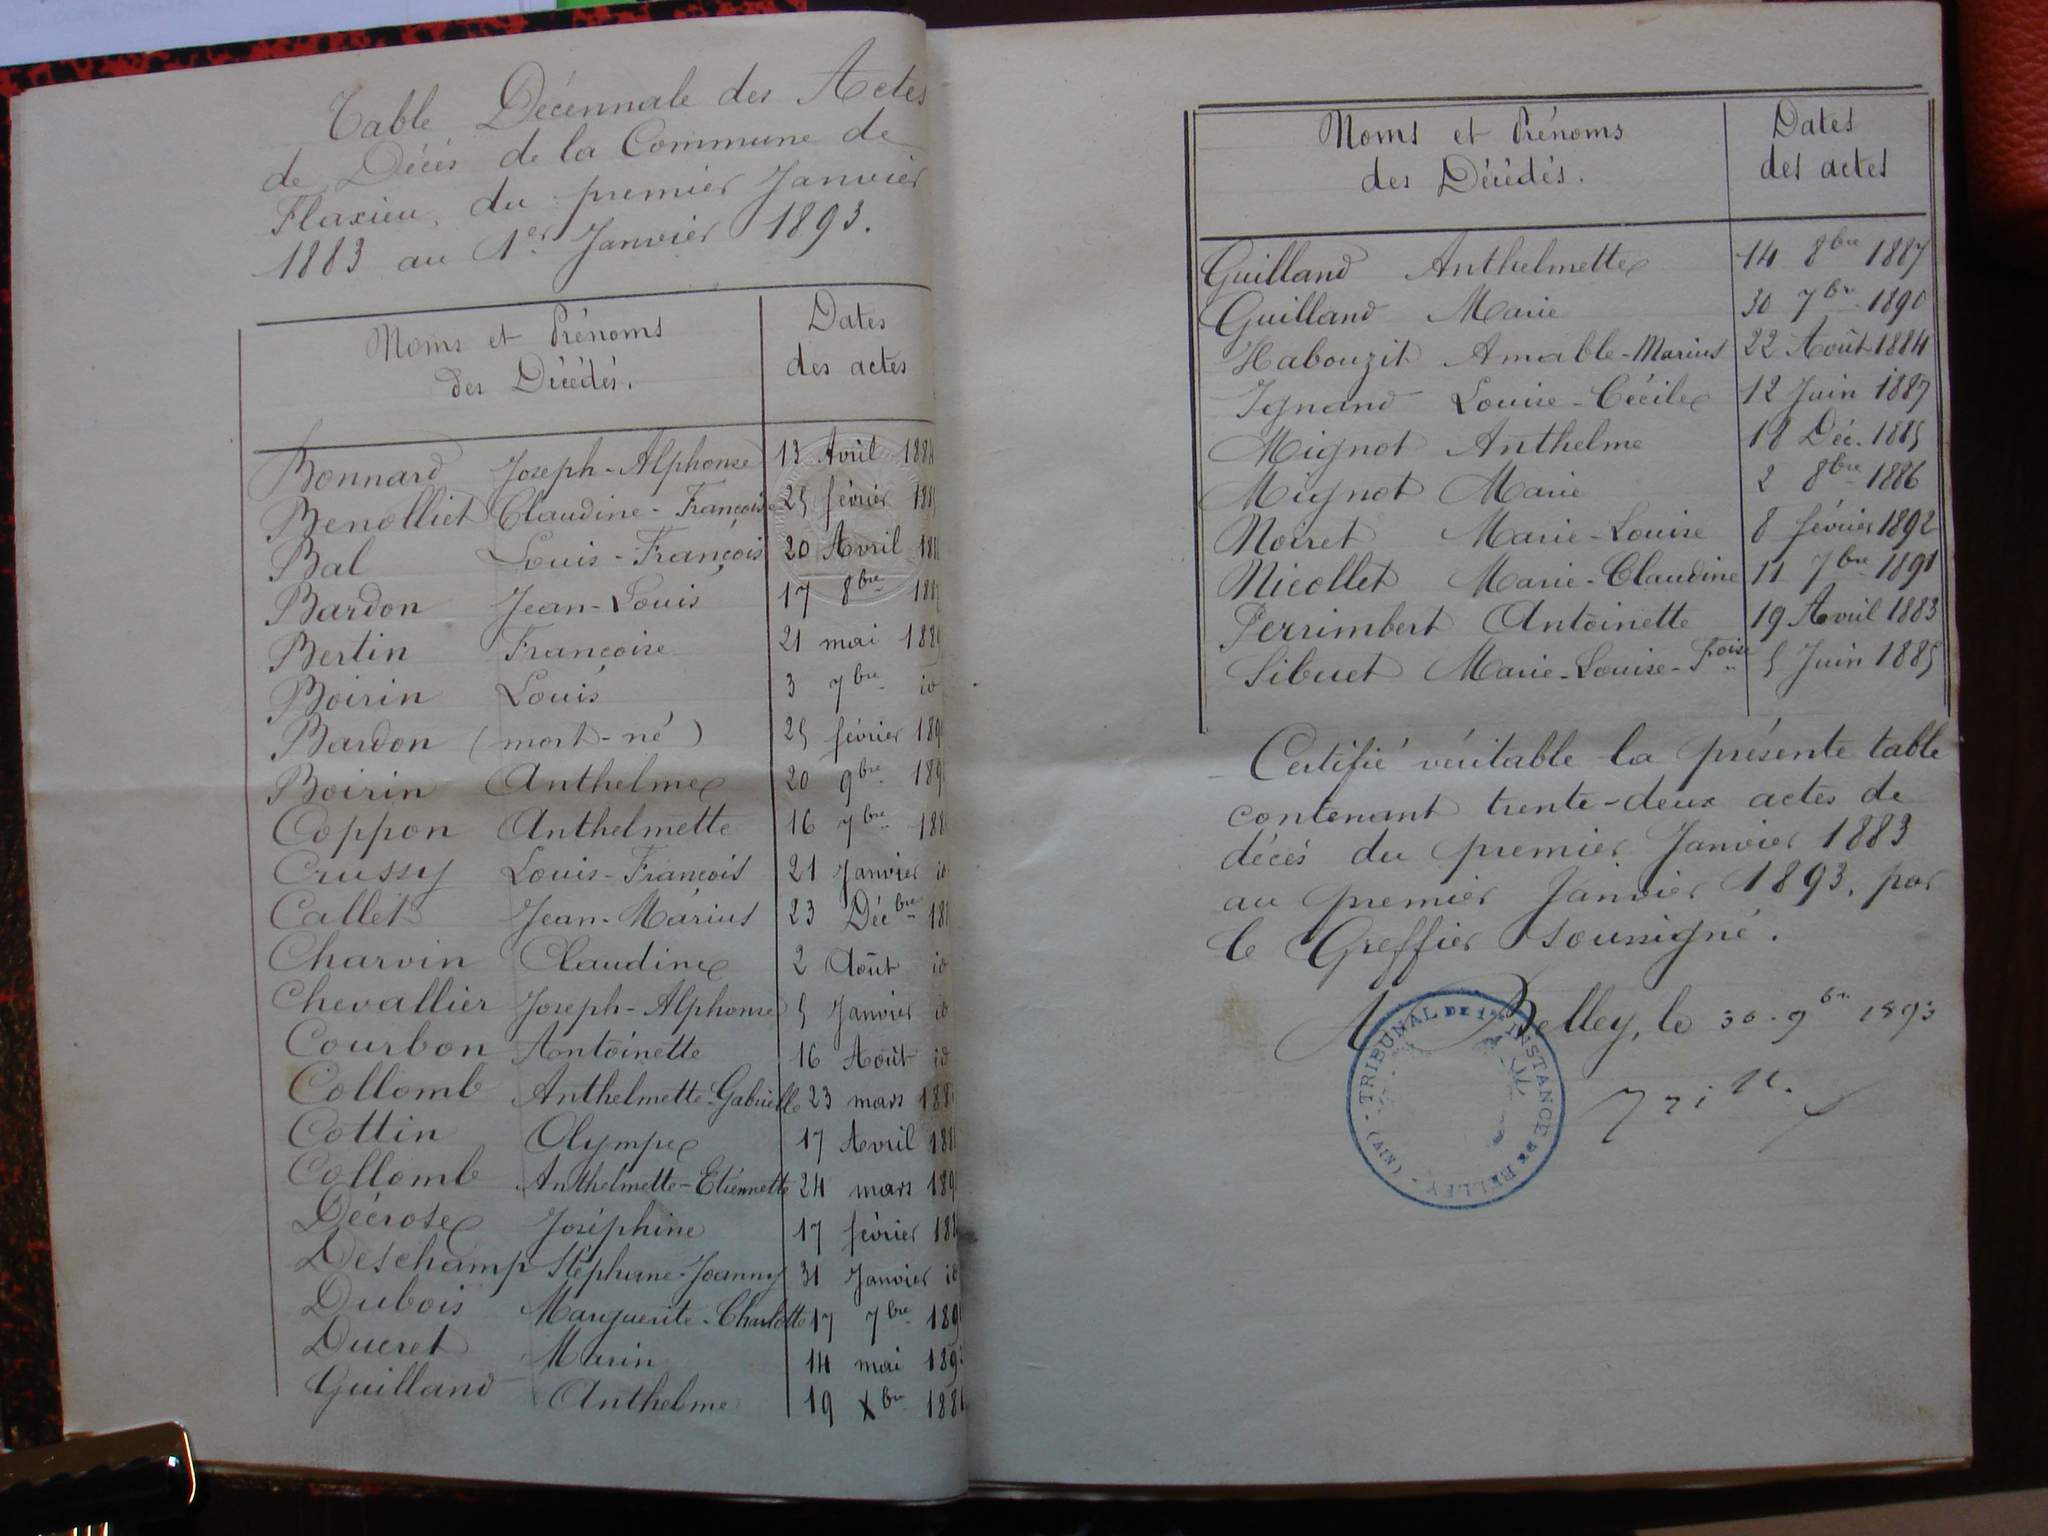 Table Décennale des Actes
de Décès de la Commune de
Flaxieu, du premier Janvier
1883 au 1er Janvier 1893.
Noms et Prénoms
des Décédés.
Dates
des actes
Bonnard Joseph-Alphonse 13 Avril 188
Benolliet Claudine-Françoise 25 février 188
Bal Louis-François 20 Avril 188
Bardon Jean-Louis 17 8bre 188
Bertin Françoise 21 mai 1889
Boirin Louis 3 7bre id
Bardon (mort-né) 25 février 189
Boirin Anthelme 20 9bre 189
Coppon Anthelmette 16 7bre 188
Crussy Louis-François 21 Janvier id
Callet Jean-Marius 23 Décbre 18
Charvin Claudine 2 Août id
Chevallier Joseph-Alphonse 5 Janvier id
Courbon Antoinette 16 Août id
Collomb Anthelmette-Gabrielle 23 mars 188
Cottin Olympe 17 Avril 188
Collomb Anthelmette-Etiennette 24 mars 189
Décrose Joséphine 17 février 188
Deschamp Stéphane-Joanny 31 Janvier id
Dubois Marguerite-Charlotte 17 7bre 189
Ducret Marin 14 mai 189
Guilland Anthelme 19 Xbre 188
Noms et Prénoms
des Décédés.
Dates
des actes
Guilland Anthelmette 14 8bre 1887
Guilland Marie 30 7bre 1890
Habouzit Amable-Marius 22 Août 1884
Ignand Louise-Cécile 12 Juin 1887
Mignot Anthelme 18 Déc. 1885
Mignot Marie 2 8bre 1886
Noiret Marie-Louise 8 février 1892
Nicollet Marie-Claudine 11 7bre 1891
Perrimbert Antoinette 19 Avril 1883
Sibuet Marie-Louise-Foise 5 Juin 1885
Certifié véritable la présente table
contenant trente-deux actes de
décès du premier Janvier 1883
au premier Janvier 1893, par
le Greffier soussigné.
A Belley, le 30 9bre 1893
TRIBUNAL DE 1re INSTANCE DE BELLEY (AIN)